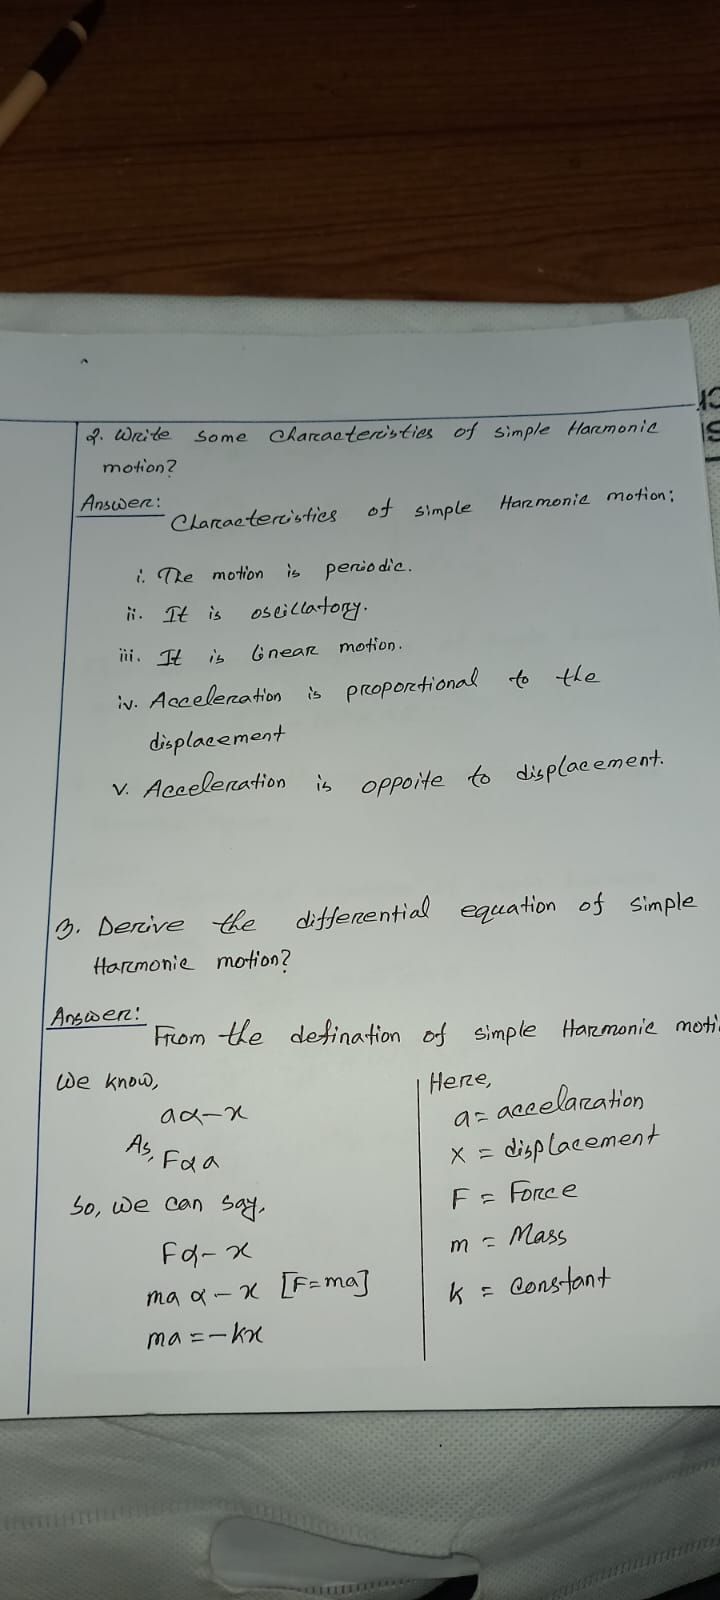 2. Write some Characteristics of simple Harmonic
motion?
Answer:
Characteristics of simple Harmonic motion:
i. The motion is periodic.
ii. It is oscillatory.
iii. It is linear motion.
iv. Acceleration is proportional to the
displacement
v. Acceleration is oppoite to displacement.
3. Derive the differential equation of simple
Harmonic motion?
Answer:
From the defination of simple Harmonic moti
We know,
a∝-x
As, F∝a
So, we can say,
F∝-x
ma ∝ -x [F=ma]
ma = -kx
Here,
a = accelaration
x = displacement
F = Force
m = Mass
k = constant